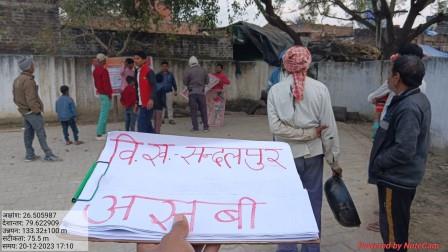 वि.ख.- सन्दलपुर
असवी
अक्षांश: 26.505987
देशान्तर: 79.622909
उन्नयन: 133.32±100 m
सटीकता: 75.5 m
समय: 20-12-2023 17:10
Powered by NoteCam